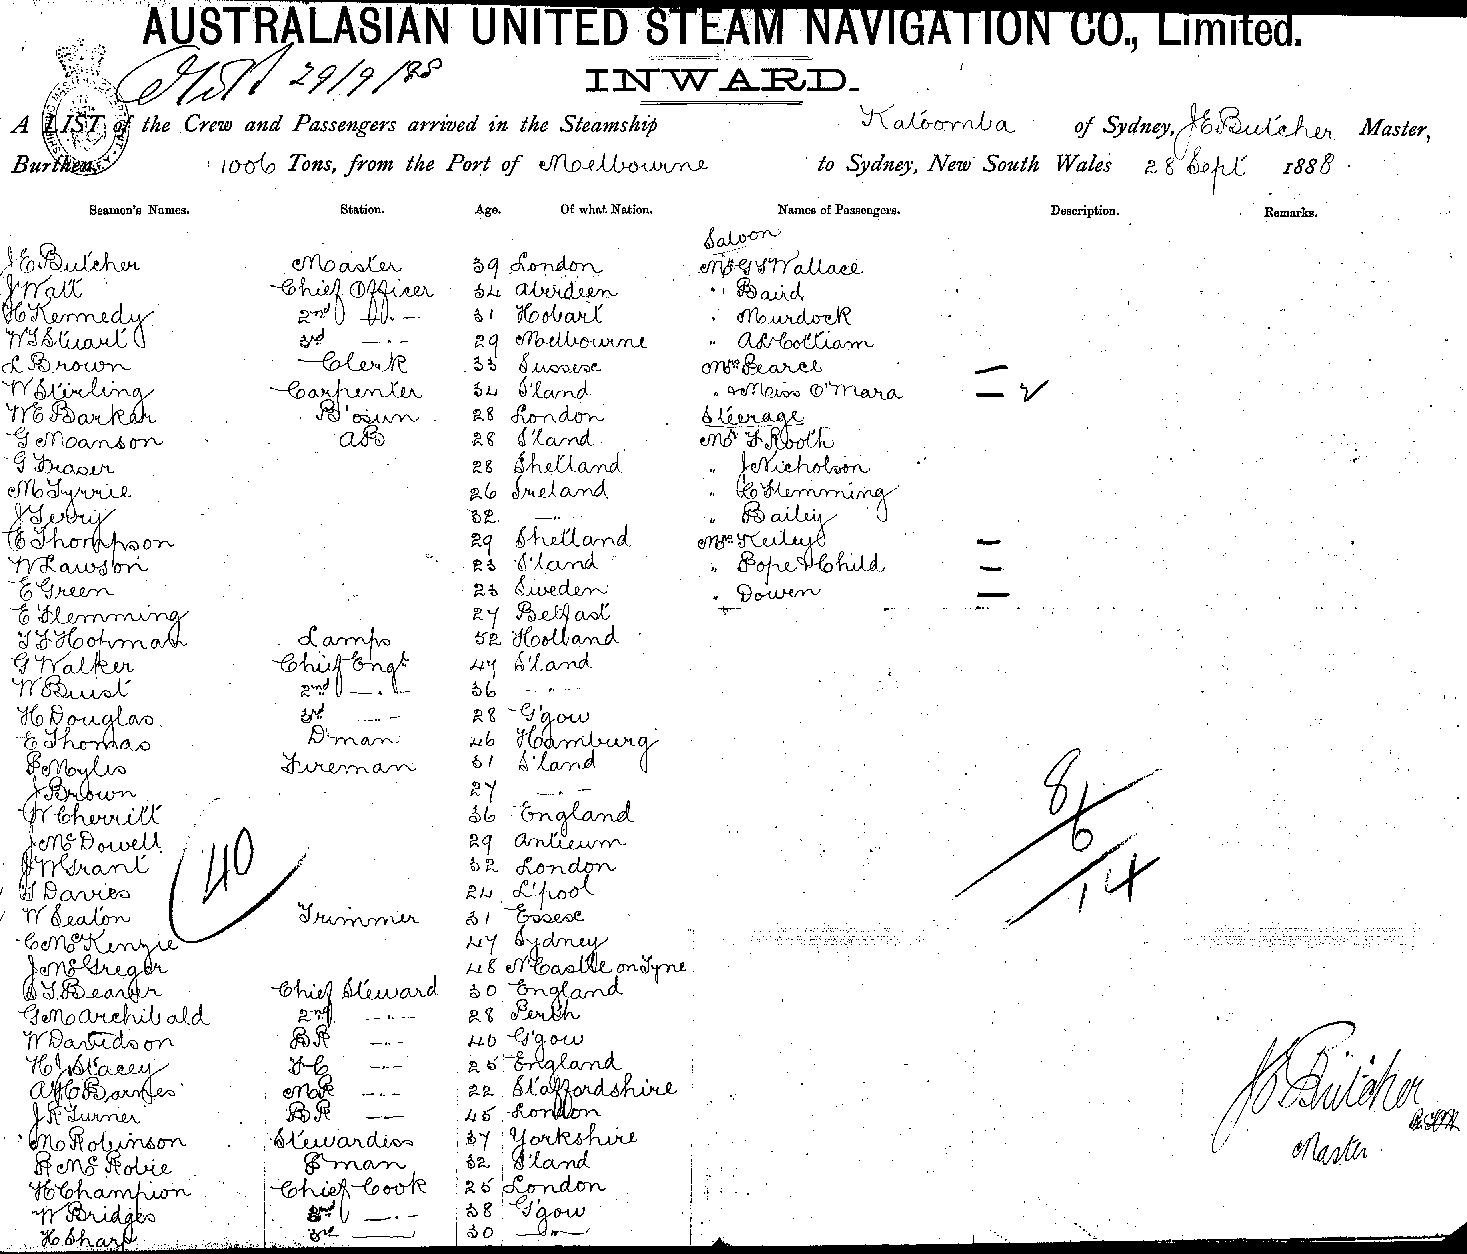 AUSTRALASIAN UNITED STEAM NAVIGATION CO., Limited.
29/9/88
INWARD.
A LIST of the Crew and Passengers arrived in the Steamship Katoomba of Sydney, J E Butcher Master,
Burthen 1006 Tons, from the Port of Melbourne to Sydney, New South Wales 28 Sept 1888
Seamen's Names. Station. Age. Of what Nation. Names of Passengers. Description. Remarks.
Saloon
J E Butcher Master 39 London Mr G S Wallace
J Watt Chief Officer 34 Aberdeen " Baird
H Kennedy 2nd " 31 Hobart " Murdock
W S Stuart 3rd " 29 Melbourne "
L Brown Clerk 33 Sussex Mrs Pearce —
W Stirling Carpenter 34 S'land " & Miss O'Mara —
W E Barker B'osun 28 London Steerage
G Moanson AB 28 S'land Mr F Rooth
G Fraser 28 Shetland " J Nicholson
M Tyrrie 26 Ireland " C Flemming
J Terry 32 " " Bailey
C Thompson 29 Shetland Mrs Keiley —
W Lawson 23 S'land " Pope & Child —
E Green 23 Sweden " Dowen —
E Flemming 27 Belfast
Hofman Lamps 52 Holland
G Walker Chief Engr 47 S'land
W Buist 2nd " 36 "
H Douglas 3rd " 28 G'gow
E Thomas D'man 46 Hamburg
P Myles Fireman 31 S'land
J Brown 27 "
W Cherritt 36 England
J McDowell 29 8/6
J W Grant 32 London
S Davies 24 L'pool 14
40
W Seaton Trimmer 31 Essex
C McKenzie 47 Sydney
J McGregor 48 N'Castle on Tyne
S T Bearer Chief Steward 30 England
G M Archibald 2nd " 28 Perth
W Davidson BR " 40 G'gow
H J Stacey FC " 25 England
A H C Barnes MR " 22 Staffordshire
J R Turner BR " 45 London
M Robinson Stewardess 37 Yorkshire
R McRobie P'man 32 S'land
H Champion Chief Cook 25 London
W Bridges 2nd " 38 G'gow
H Sharp 3rd " 30 "
J E Butcher
Master